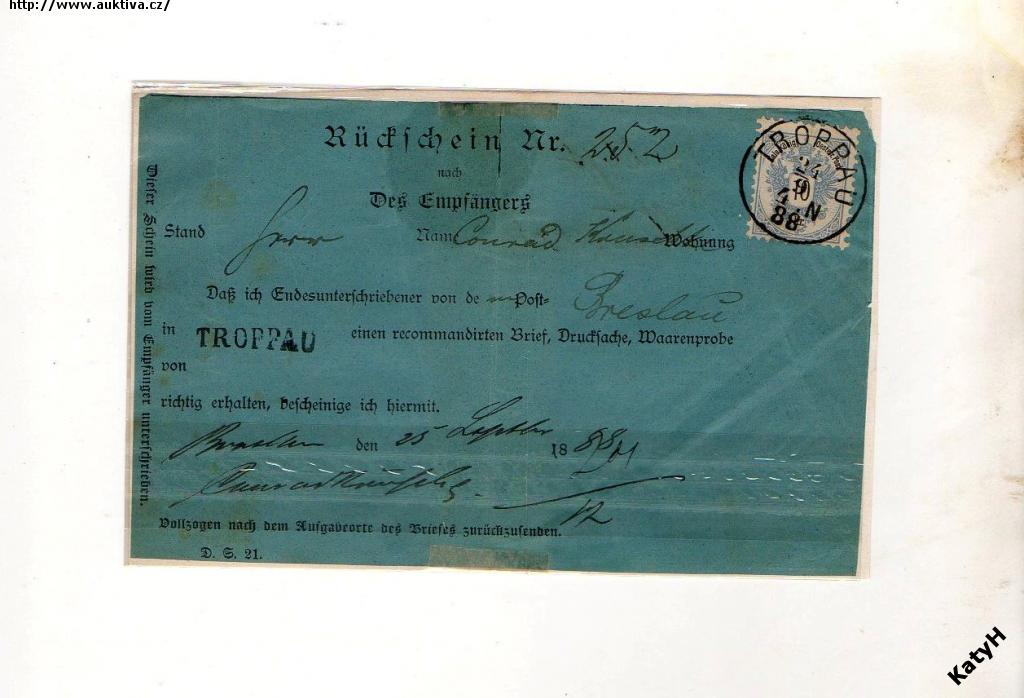 http://www.auktiva.cz/
Rückschein Nr. 252
nach
Des Empfängers
Stand Herr Nam Conrad Wohnung
Daß ich Endesunterschriebener von de m Post-
Breslau
in TROPPAU einen recommandirten Brief, Drucksache, Waarenprobe
von
richtig erhalten, bescheinige ich hiermit.
Breslau den 25 Septbr 1888
Vollzogen nach dem Aufgabeorte des Briefes zurückzusenden.
D. S. 21.
Dieser Schein wird vom Empfänger unterschrieben.
TROPPAU
24
9
88
10
KatyH